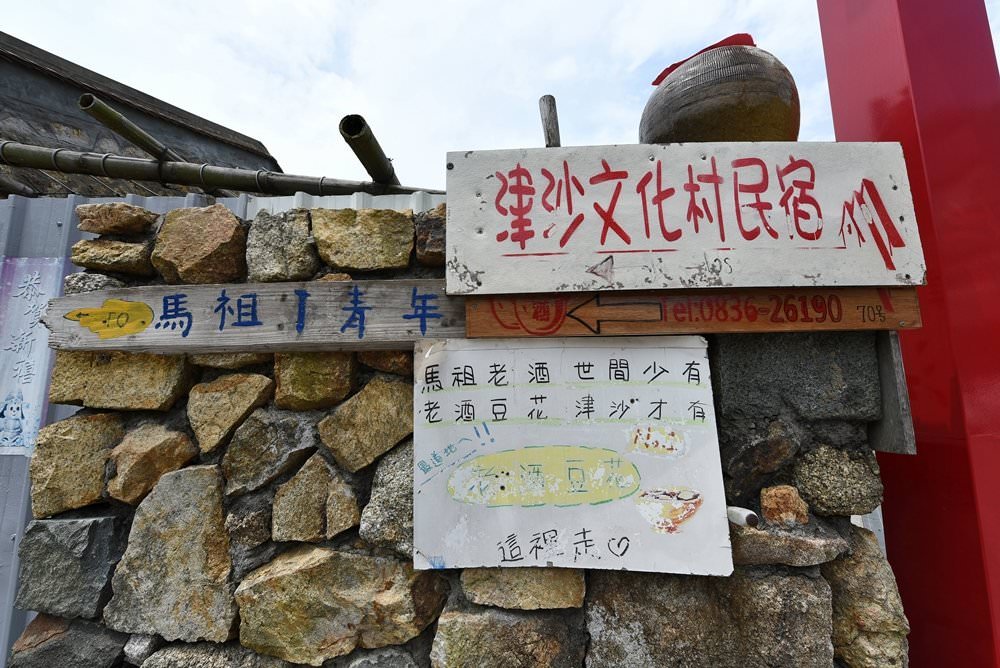 津沙文化村民宿
馬祖丁青年
酒
Tel:0836-26190
馬祖老酒世間少有
老酒豆花 津沙才有
No.1
老酒豆花
這裡走♡
恭賀新禧